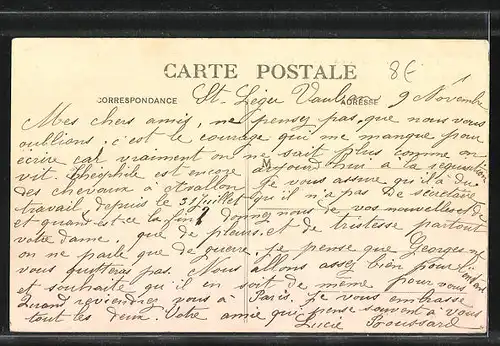 8€
CARTE POSTALE
CORRESPONDANCE
ADRESSE
St Léger Vauban 9 Novembre
Mes chers amis, ne pensez pas que nous vous
oullions c'est le courage qui me manque pour
écrire car vraiment on ne sait plus comme on
vit Théophile est encore aujourd'hui à la réquisition
des chevaux à Avallon je vous assure qu'il a du
travail depuis le 31 juillet qu'il n'a pas de secrétaire
et quand est ce la fin? donnez nous de vos nouvelles et de
votre dame, que de pleurs et de tristesse partout
on ne parle que de guerre, je pense que Georges ne
vous quittera pas. Nous allons assez bien pour l'instant
et souhaite qu'il en soit de même pour vous
Quand reviendrez vous à Paris, je vous embrasse
tout les deux. Votre amie qui pense souvent à vous
Lucie Boussard